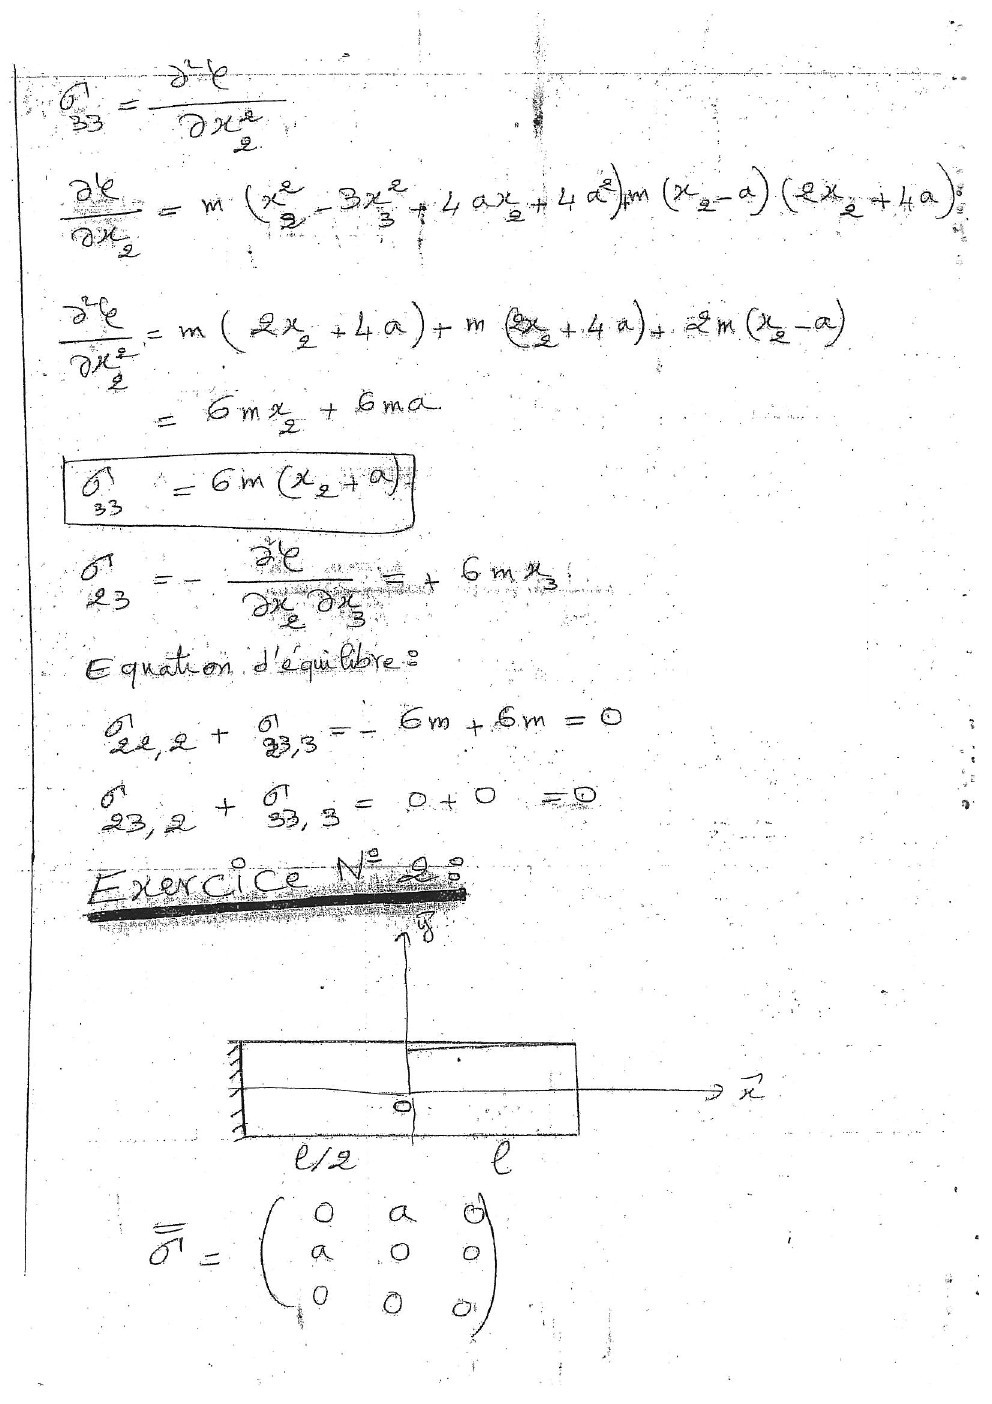 σ₃₃ = ∂²φ / ∂x₂²
∂φ / ∂x₂ = m (x₂² - 3x₃² + 4 a x₂ + 4 a²) + m (x₂ - a) (2x₂ + 4a).
∂²φ / ∂x₂² = m ( 2x₂ + 4 a) + m (2x₂ + 4 a) + 2m (x₂ - a)
= 6 m x₂ + 6 m a.
σ₃₃ = 6 m (x₂ + a).
σ₂₃ = - ∂²φ / ∂x₂ ∂x₃ = + 6 m x₃.
Equation d'équilibre :
σ₂₂,₂ + σ₂₃,₃ = - 6m + 6m = 0
σ₂₃,₂ + σ₃₃,₃ = 0 + 0 = 0
Exercice N° 2 :
y
x
O
l/2 l
σ = ( 0 a 0
a 0 0
0 0 0 )